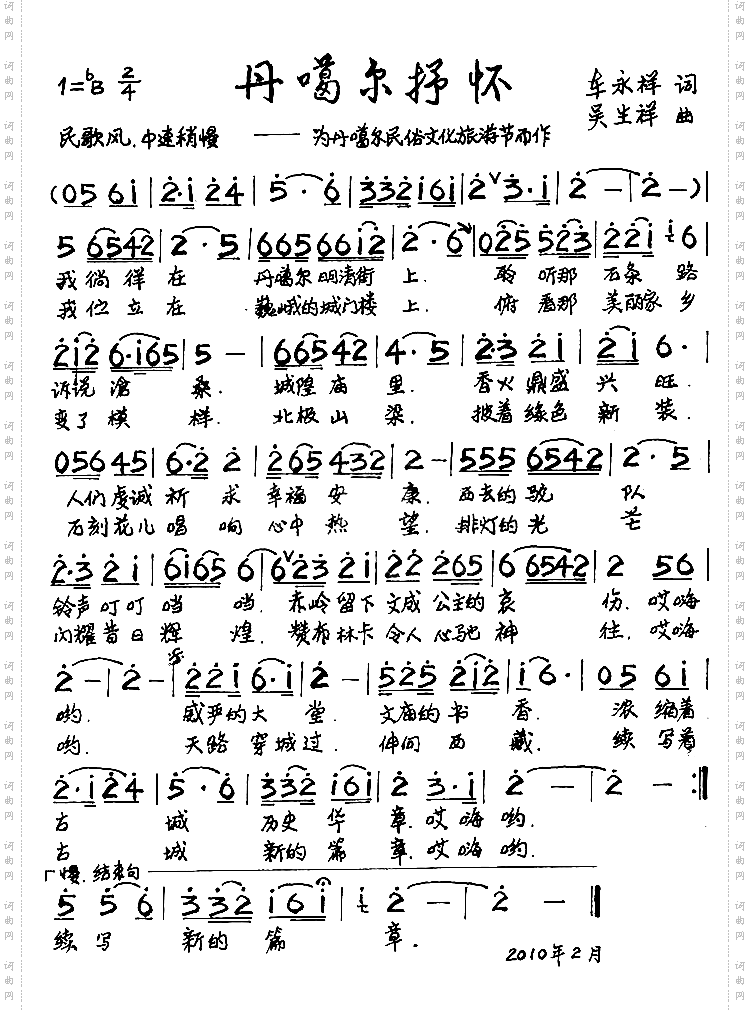 丹噶尔抒怀
1=♭B 2/4
车永祥 词
吴生祥 曲
民歌风.中速稍慢 —— 为丹噶尔民俗文化旅游节而作
(05 6i|2·i 24|5·6|332 i6i|2 ∨3·i|2 —|2 —)|
5 6542|2·5|665 66i2|2·6|025 523|22i 6|
我徜徉在 丹噶尔明清街 上. 聆听那 石条 路
我伫立在 巍峨的城门楼 上. 俯看那 美丽家 乡
2i2 6·i65|5 —|66542|4·5|2·3 2i|2i 6·|
诉说沧 桑. 城隍庙 里. 香火鼎盛 兴 旺.
变了模 样. 北极山 梁. 披着绿色 新 装.
056 45|6·2 2|265 432|2 —|555 6542|2·5|
人们虔诚 祈 求 幸福安 康. 西去的驼 队
石刻花儿 唱 响 心中热 望. 排灯的光 芒
2·3 2i|6i65 6|6∨23 2i|22 265|6 6542|2 56|
铃声叮叮 当 当. 赤岭留下 文成公主的哀 伤.哎嗨
闪耀昔日 辉 煌. 赞布林卡 令人心驰神 往.哎嗨
2 —|2 —|22i 6·i|2 —|525 2i2|i6·|05 6i|
哟. 威严的大 堂. 文庙的书 香. 浓缩着
哟. 天路穿城过. 伸向西 藏. 续写着
2·i 24|5·6|332 i6i|2 3·i|2 —|2 —:|
古 城 历史华 章.哎嗨 哟.
古 城 新的篇 章.哎嗨 哟.
慢.结束句
5 56|332 i6i|2 —|2 —|
续写 新的篇 章.
2010年2月
词曲网